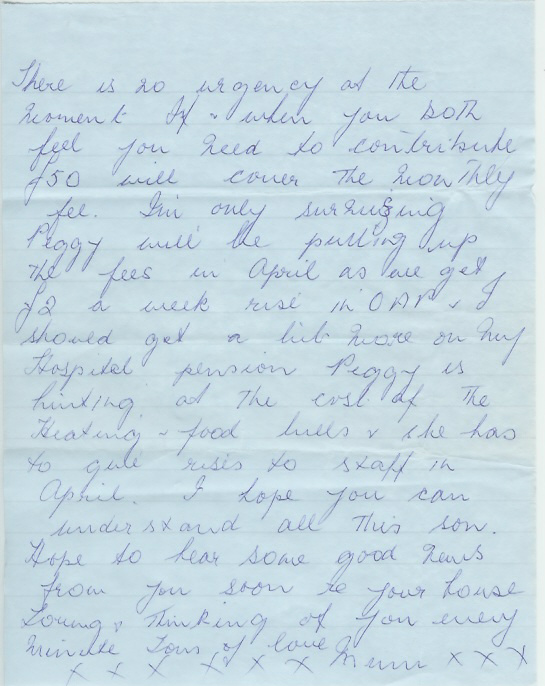 There is no urgency at the
moment If & when you both
feel you need to contribute
£50 will cover the monthly
fee. I'm only surmising
Peggy will be putting up
the fees in April as we get
£2 a week rise in OAP & I
should get a bit more on my
Hospital pension Peggy is
hinting at the cost of the
Heating & food bills & she has
to give rises to staff in
April. I hope you can
understand all this son.
Hope to hear some good news
from you soon re your house
Loving & thinking of you every
minute Tons of love Mum x x x
x x x x x x